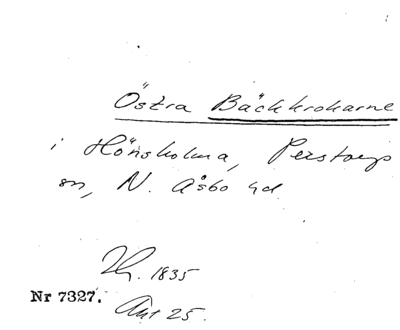 Östra Bäckkrokarne
i Hönsholma, Perstorps
sn, N. Åsbo hd.
1835
Nr 7327.
Akt 25.